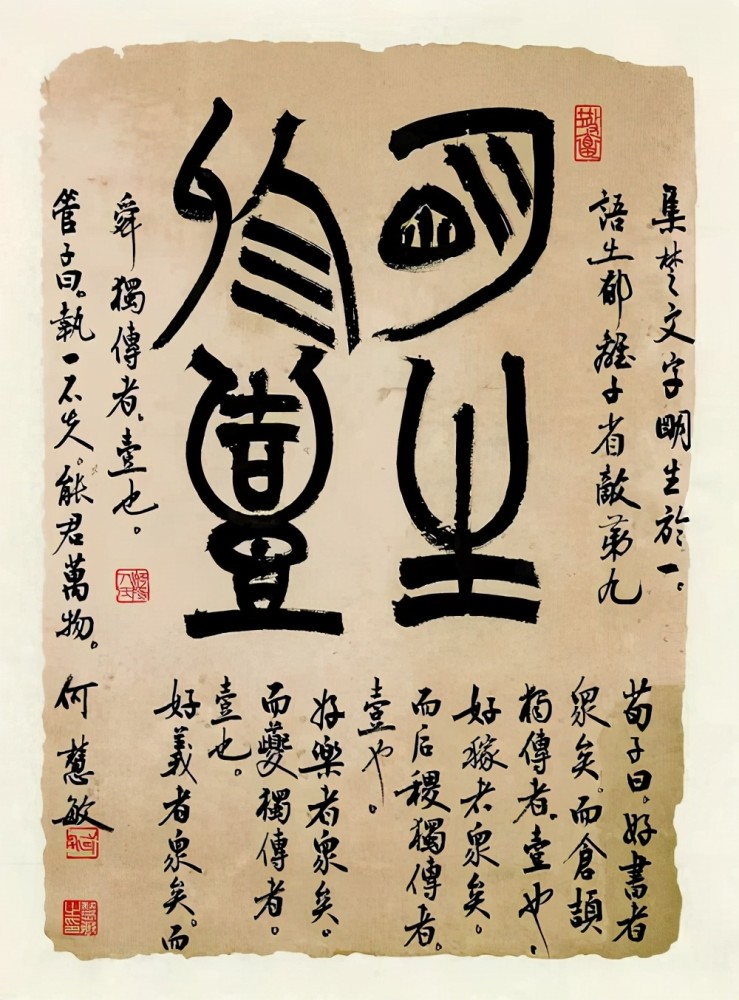 明生
於壹
集楚文字明生於一。
語出郁離子省敵第九
荀子曰。好書者
眾矣。而倉頡
獨傳者。壹也。
好稼者眾矣。
而后稷獨傳者。
壹也。
好樂者眾矣。
而夔獨傳者。
壹也。
好義者眾矣。而
舜獨傳者。壹也。
管子曰。執一不失。能君萬物。何慧敏